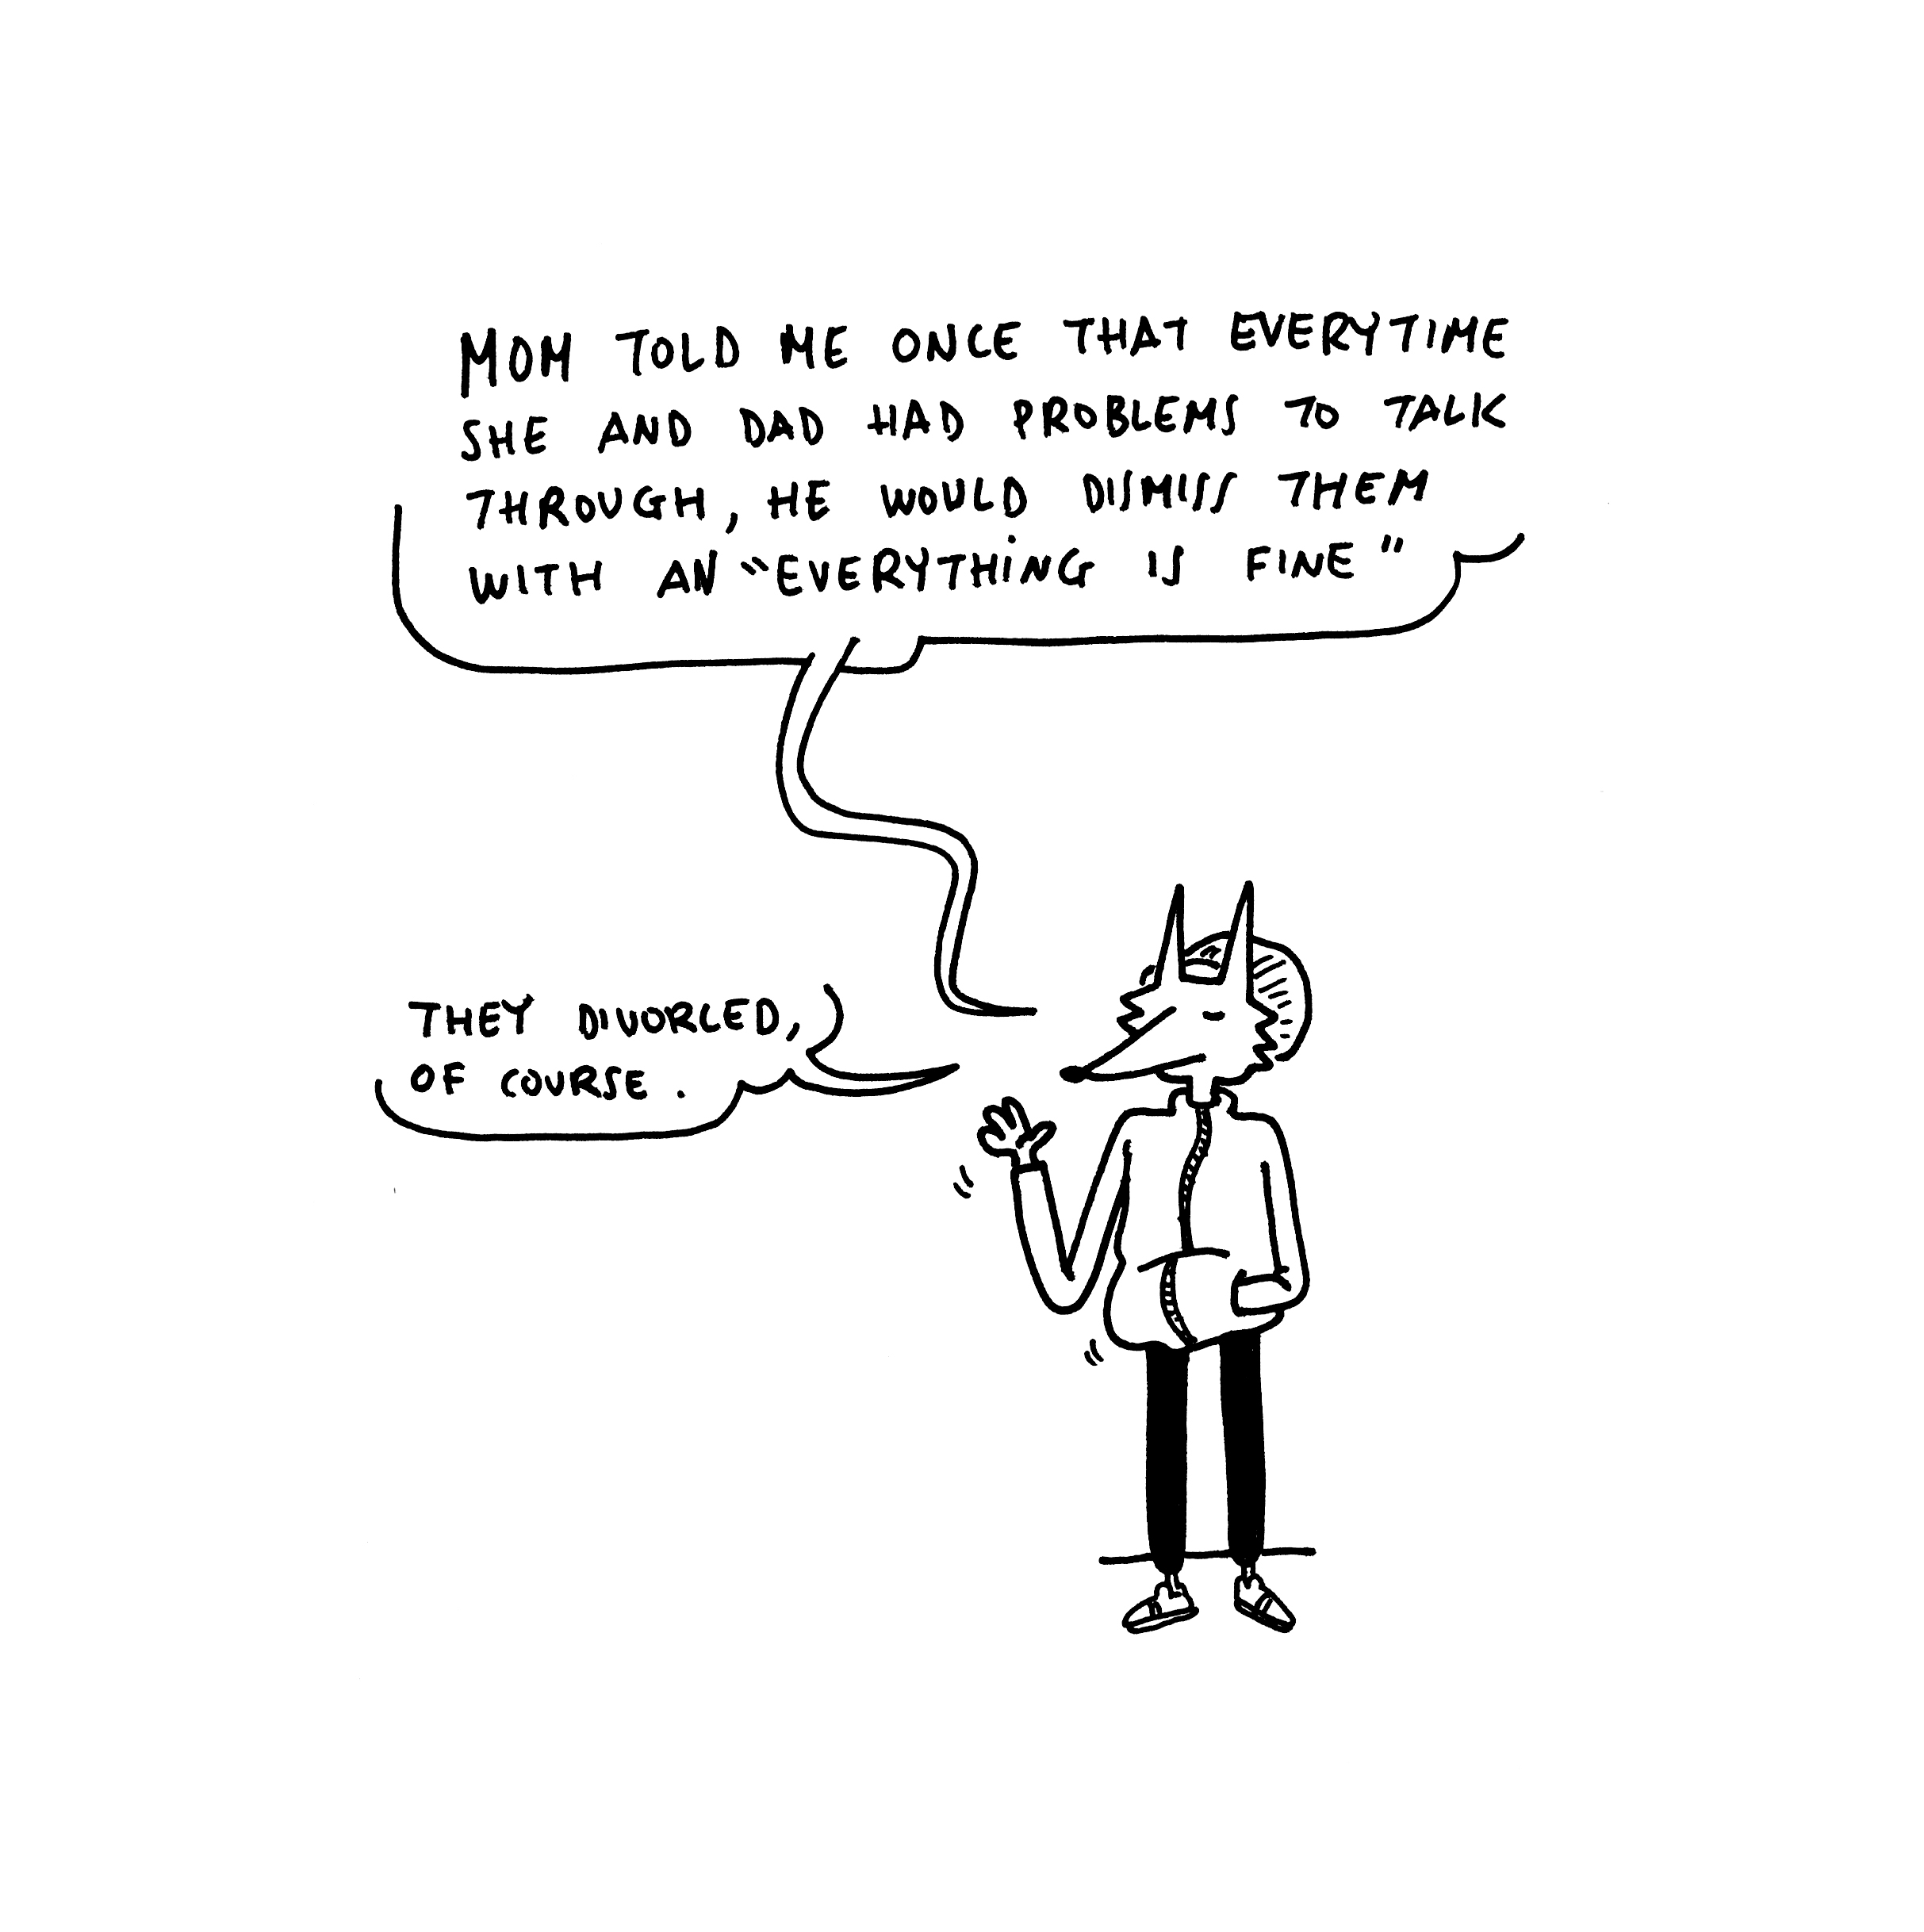 MOM TOLD ME ONCE THAT EVERYTIME
SHE AND DAD HAD PROBLEMS TO TALK
THROUGH, HE WOULD DISMISS THEM
WITH AN "EVERYTHING IS FINE"
THEY DIVORCED,
OF COURSE.